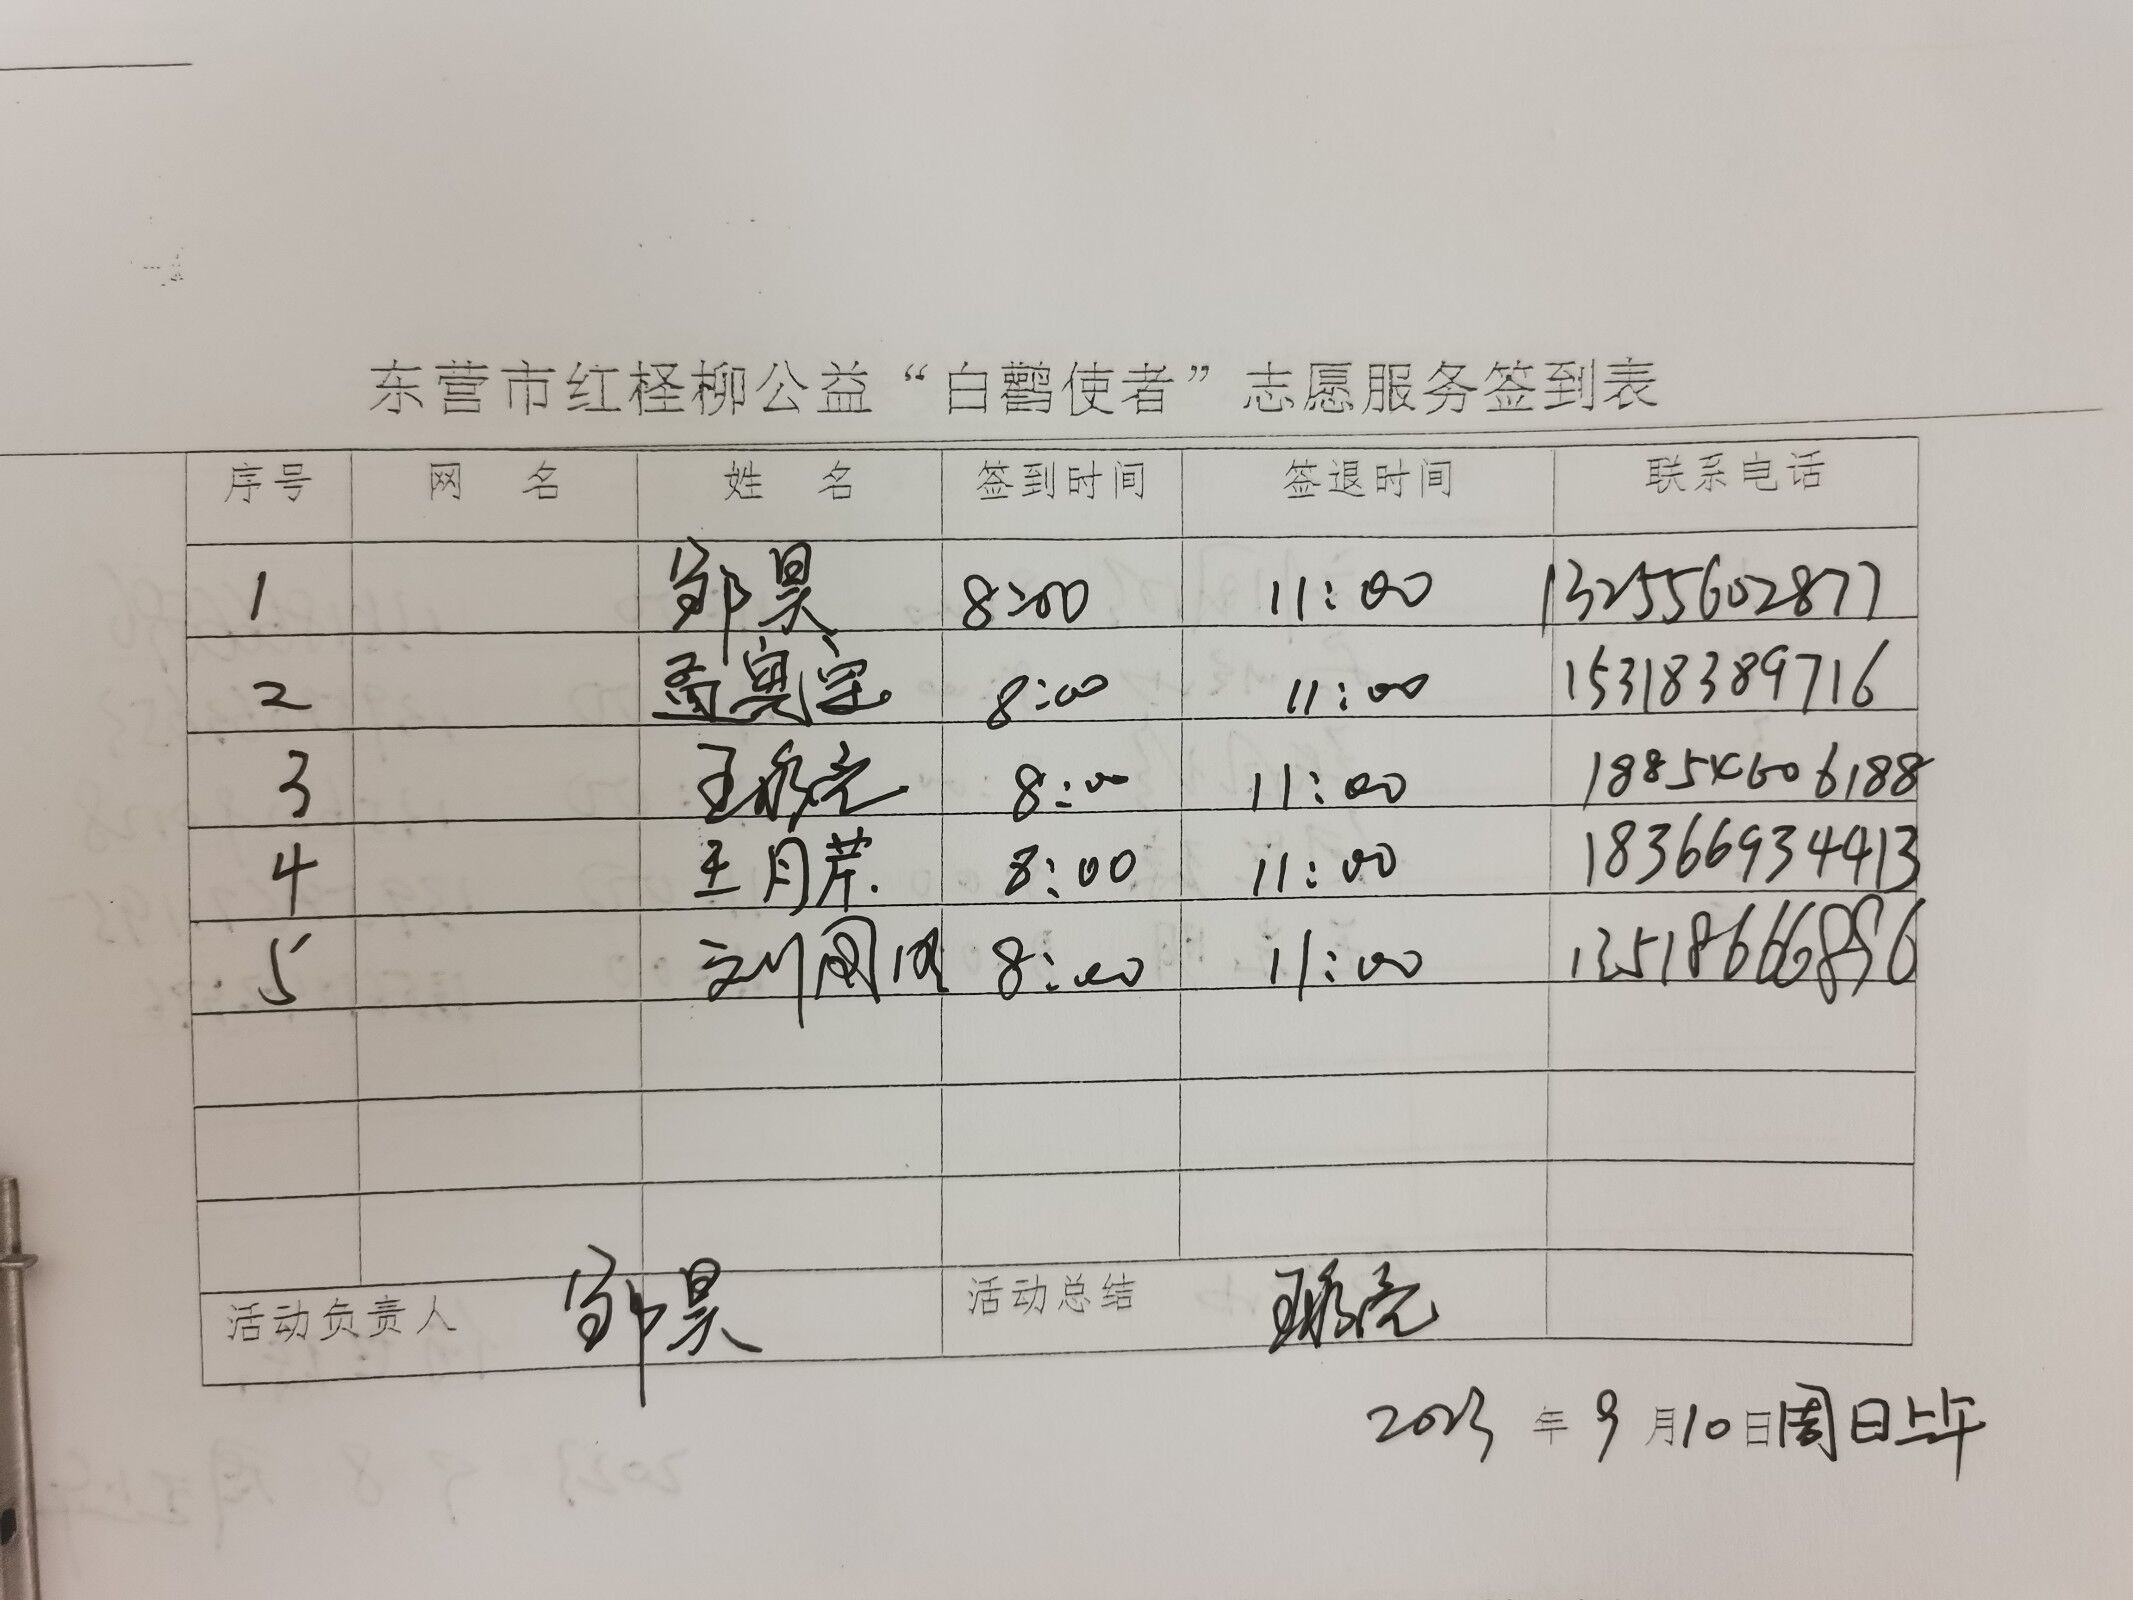 东营市红柽柳公益“白鹳使者”志愿服务签到表
序号 网 名 姓 名 签到时间 签退时间 联系电话
1 邹昊 8:00 11:00 13255602877
2 8:00 11:00 15318389716
3 8:00 11:00 18854606188
4 王月芹. 8:00 11:00 18366934413
5 8:00 11:00 13518666896
活动负责人 邹昊 活动总结
2023年9月10日周日上午